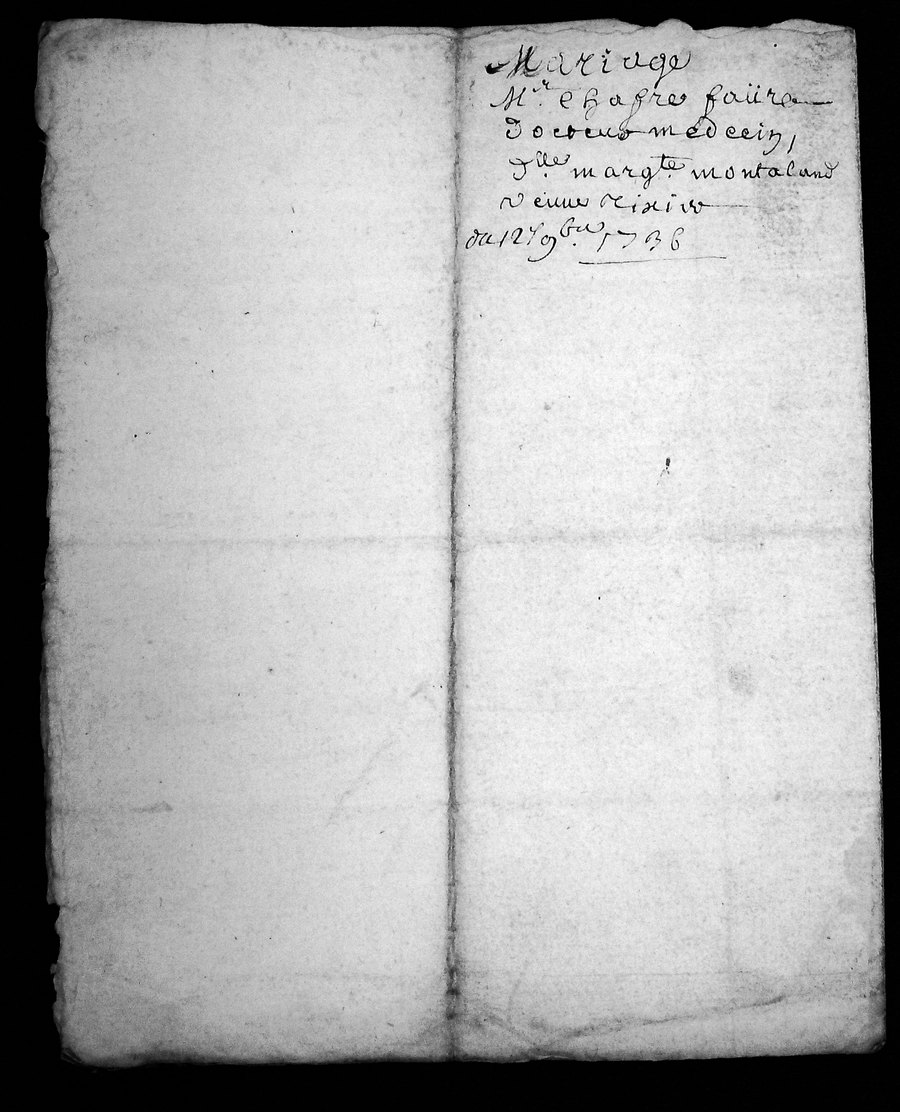 Mariage
Mr Chafre faüre
Docteur médecin,
Dlle margte montaland
veuve
du 12e 9bre 1736